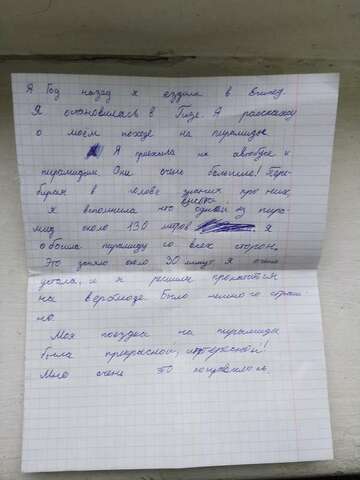 Я Год назад я ездила в Египед.
Я остановилась в Гизе. Я расскажу
о моем походе на пирамиды.
Я приехала на автобусе к
пирамидам. Они очень большие! Пере-
бирая в голове знания про них,
я вспомнила что высота одной из пира-
мид около 130 метров Я
обошла пирамиду со всех сторон.
Это заняло около 30 минут. Я очень
устала, и я решила прокатится
на верблюде. Было немного страш-
но.
Моя поездка на пирамиды
была прекрасной, интересной!
Мне очень это понравилось.